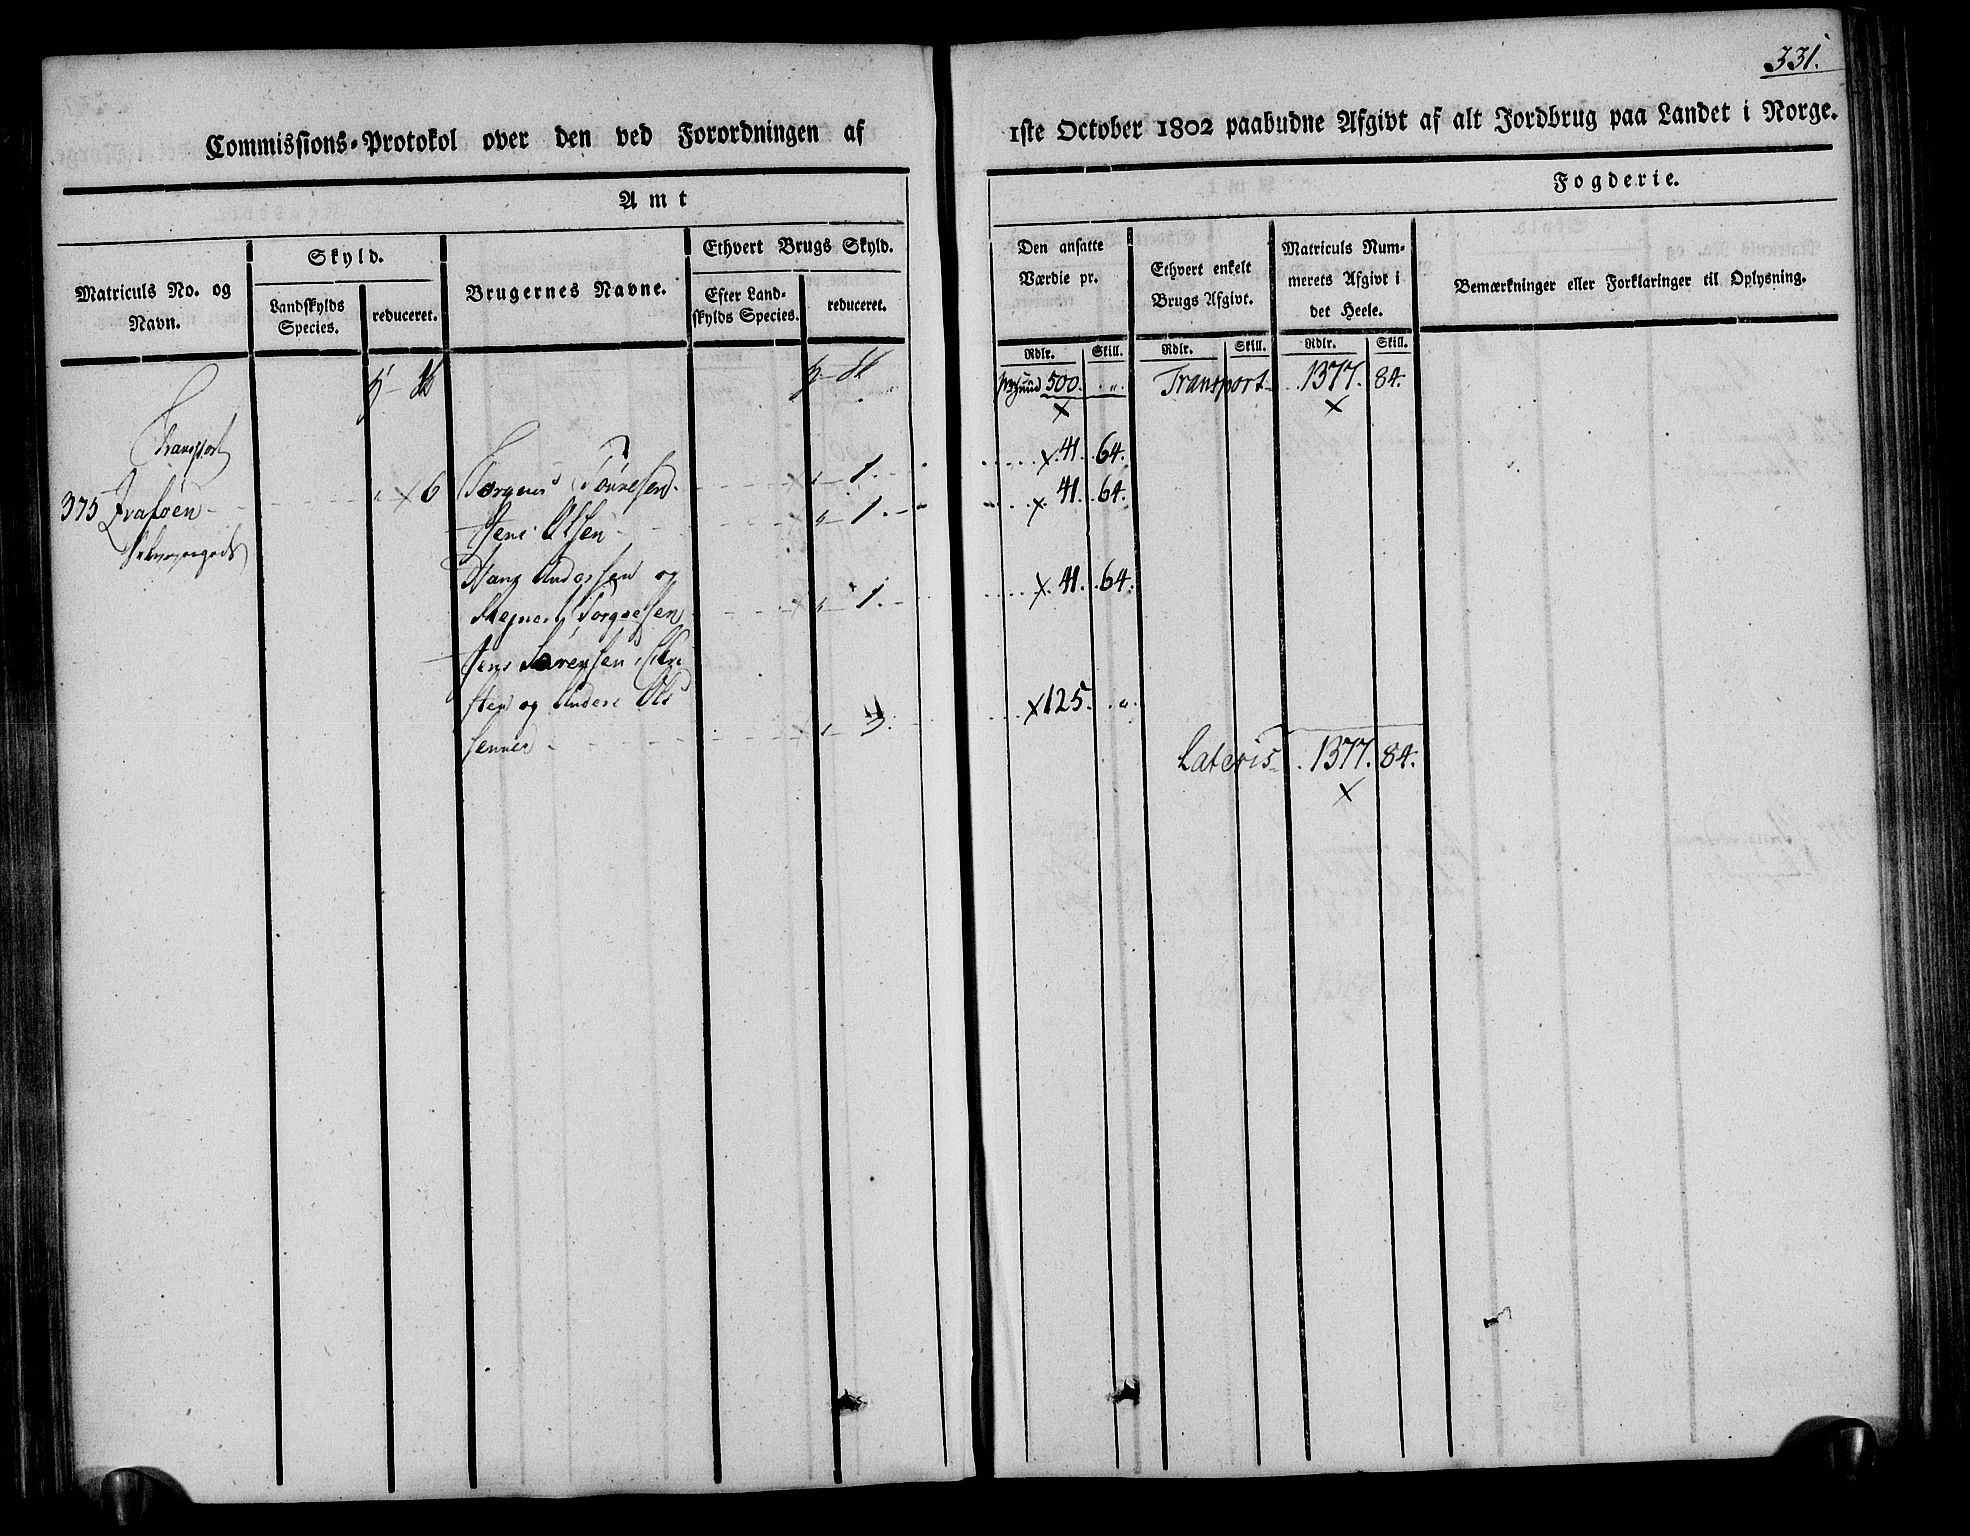 331.
Commissions-Protokol over den ved Forordningen af
1ste October 1802 paabudne Afgivt af alt Jordbrug paa Landet i Norge.
Amt
Fogderie.
Matriculs No. og Navn.
Skyld.
Landskylds Species.
reduceret.
Brugernes Navne.
Ethvert Brugs Skyld.
Efter Landskylds Species.
reduceret.
Den ansatte Værdie pr.
Rdlr. Skill.
Ethvert enkelt Brugs Afgivt.
Rdlr. Skill.
Matriculs Nummerets Afgivt i det Heele.
Rdlr. Skill.
Bemærkninger eller Forklaringer til Oplysning.
Transport
500. „ Transport 1377. 84.
375 6 Tønnesen 1. 41. 64.
Jens Olsen 1. 41. 64.
Hans Andersen og
1. 41. 64.
Jens Sørensen
sten og Anders Ol
senner 3. 125. „
Lateris 1377. 84.